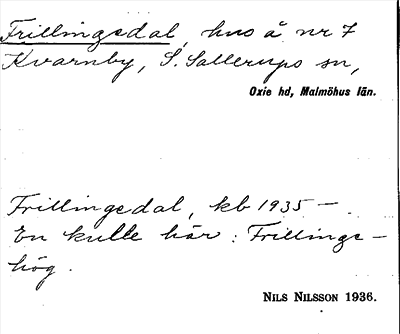 Frillingsdal, hus å nr 7
Kvarnby, S. Sallerups sn,
Oxie hd, Malmöhus län.
Frillingsdal, kb 1935 —
En kulle här : Frillings-
hög.
NILS NILSSON 1936.